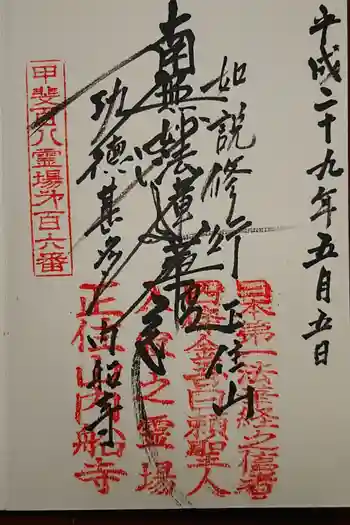 平成二十九年五月五日
如説修行 正住山
南無妙法蓮華経
功徳甚多 内船寺
甲斐百八霊場第百六番
日本第一法華経之信者
四条金吾頼基聖人
之霊場
正住山内船寺